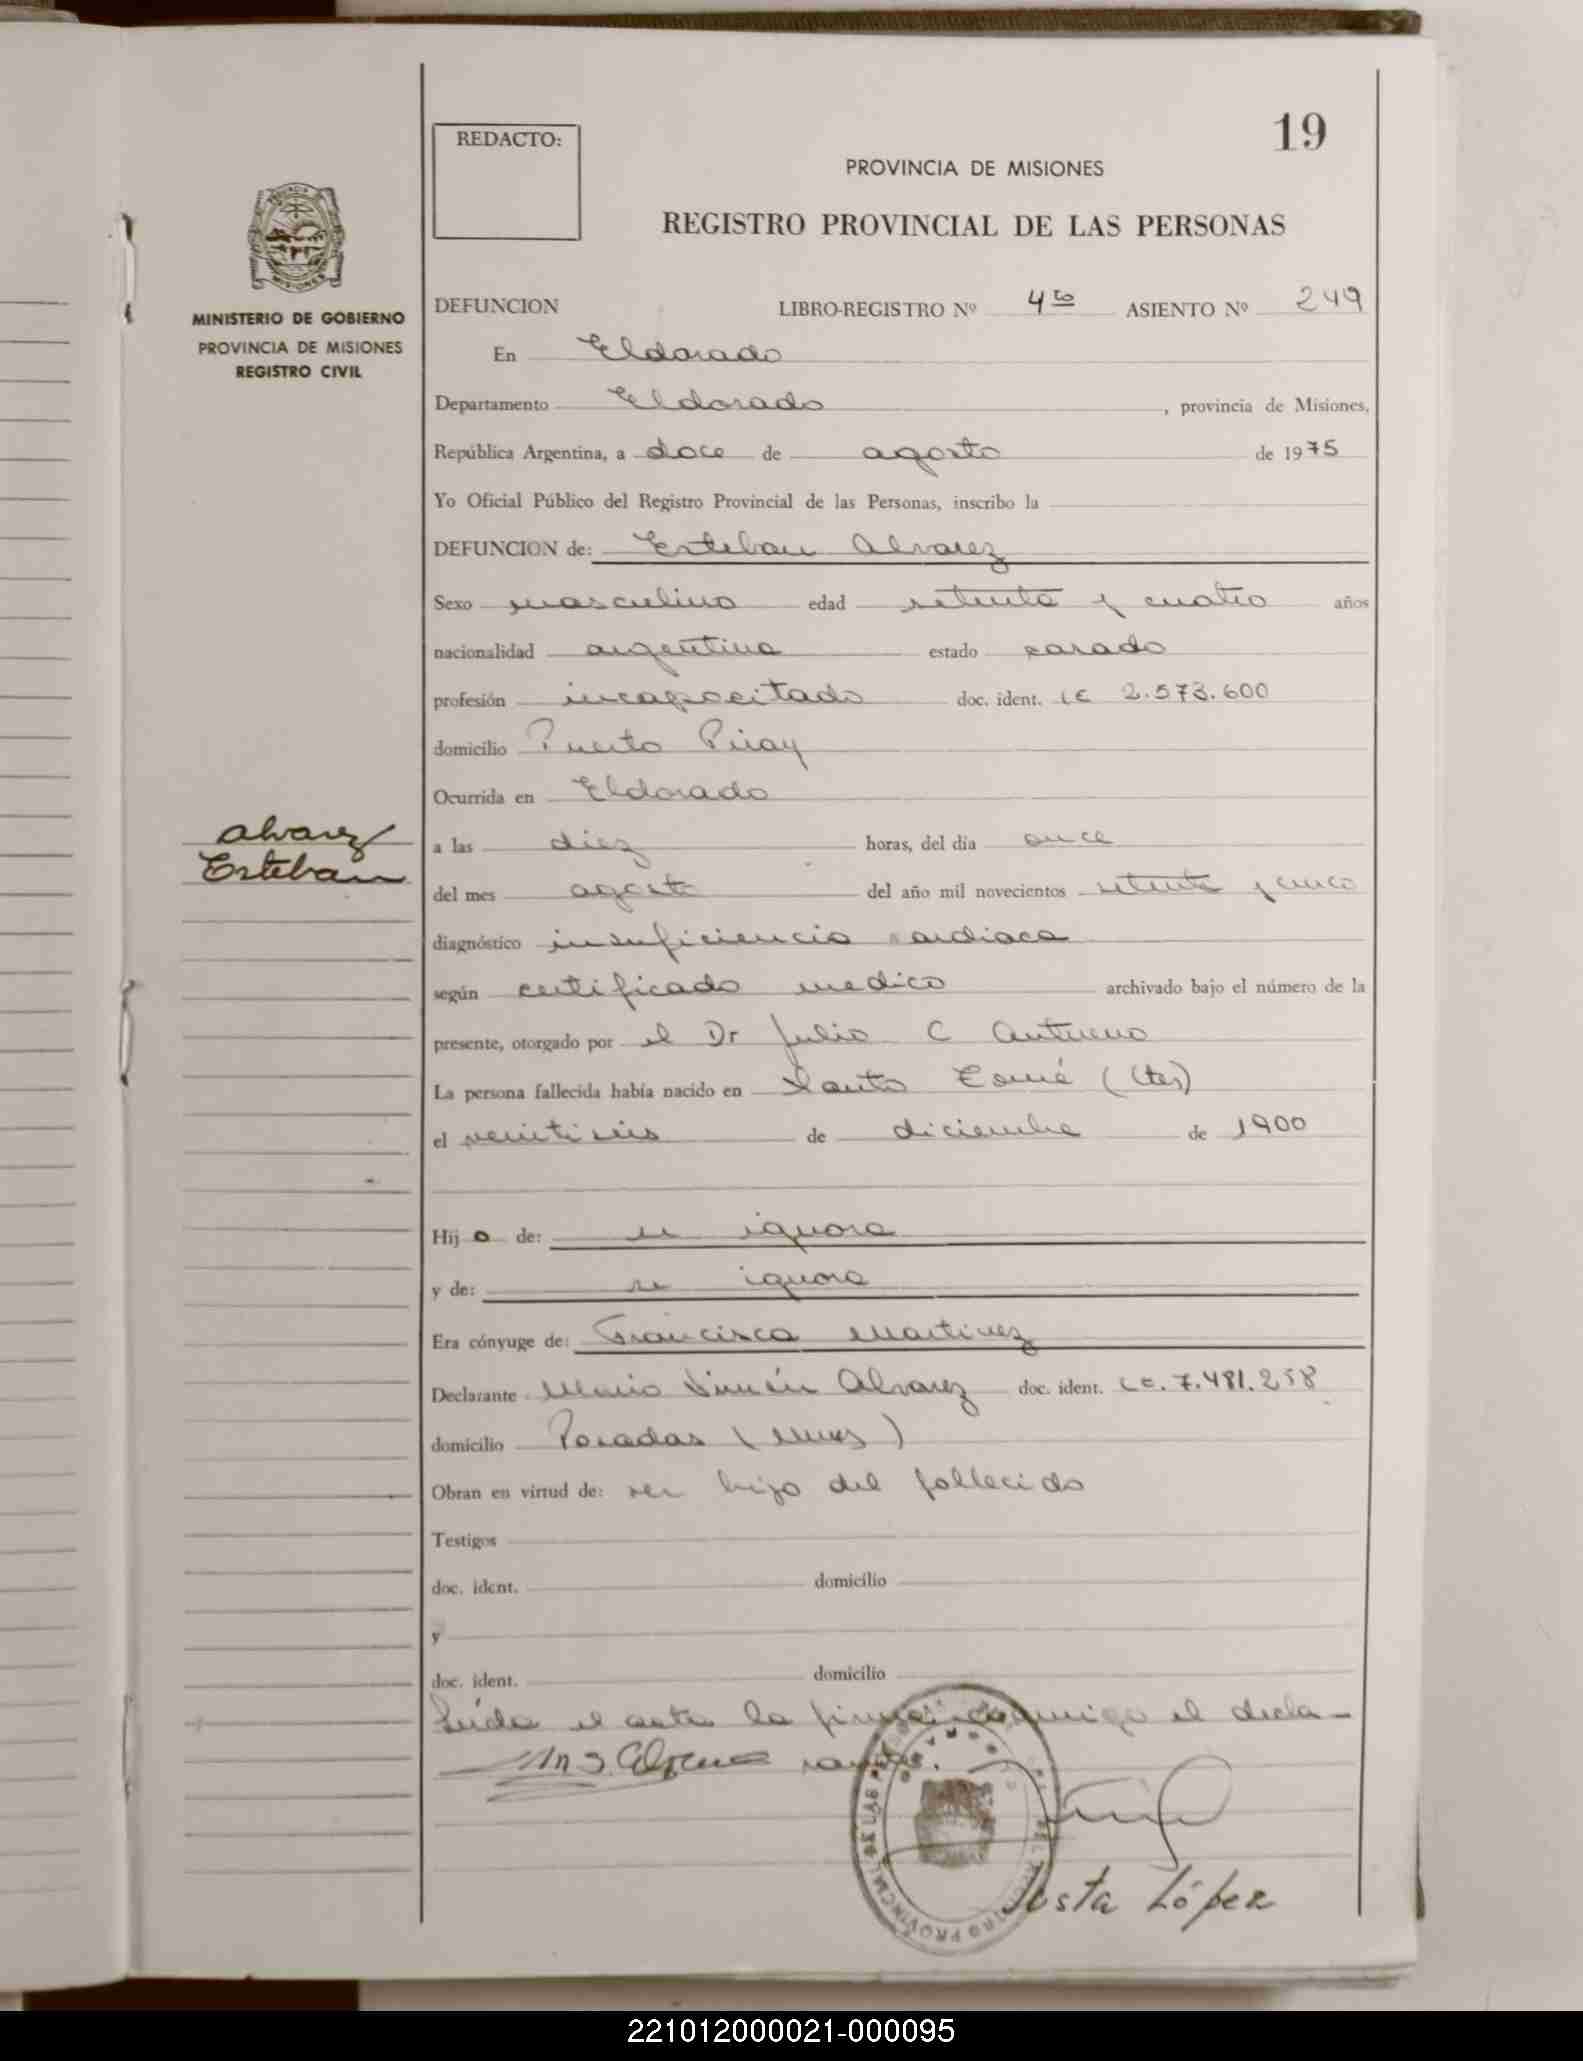 19
REDACTO:
PROVINCIA DE MISIONES
REGISTRO PROVINCIAL DE LAS PERSONAS
MINISTERIO DE GOBIERNO
PROVINCIA DE MISIONES
REGISTRO CIVIL
DEFUNCION LIBRO-REGISTRO Nº 4to ASIENTO Nº 249
En Eldorado
Departamento Eldorado, provincia de Misiones,
República Argentina, a doce de agosto de 1975
Yo Oficial Público del Registro Provincial de las Personas, inscribo la
DEFUNCION de: Esteban Alvarez
Sexo masculino edad setenta y cuatro años
nacionalidad argentina estado casado
profesión incapacitado doc. ident. LE 2.573.600
domicilio Puerto Piray
Ocurrida en Eldorado
Alvarez
Esteban
a las diez horas, del día once
del mes agosto del año mil novecientos setenta y cinco
diagnóstico insuficiencia cardiaca
según certificado medico archivado bajo el número de la
presente, otorgado por el Dr Julio C
La persona fallecida había nacido en Santo Tomé (Ctes)
el veintiseis de diciembre de 1900
Hijo de: se ignora
y de: se ignora
Era cónyuge de: Francisca Martinez
Declarante Mario Simón Alvarez doc. ident. LE. 7.481.258
domicilio Posadas (Mnes)
Obran en virtud de: ser hijo del fallecido
Testigos
doc. ident. domicilio
y
doc. ident. domicilio
Leída el acta la firma conmigo el decla-
rante.
Justa López
221012000021-000095